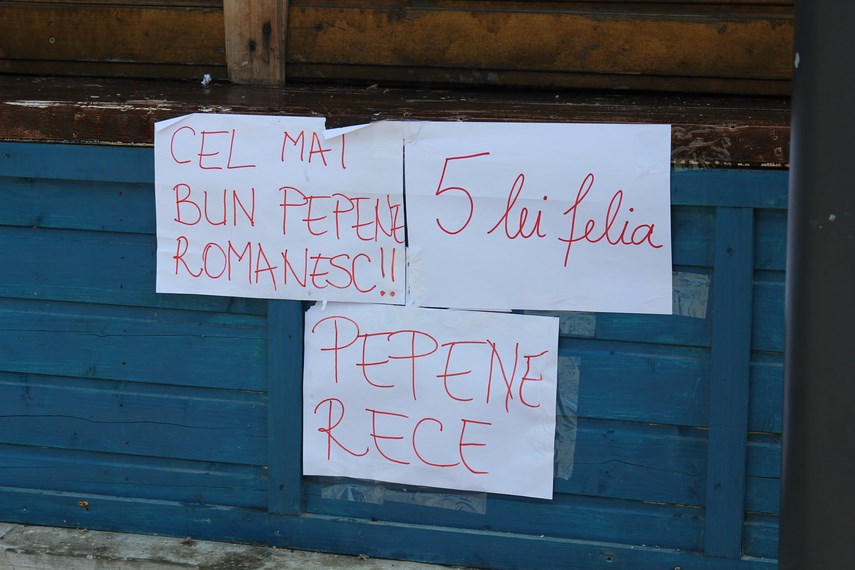 CEL MAI
BUN PEPENE
ROMANESC!!
5 lei felia
PEPENE
RECE